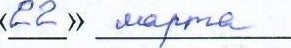 «22» марта